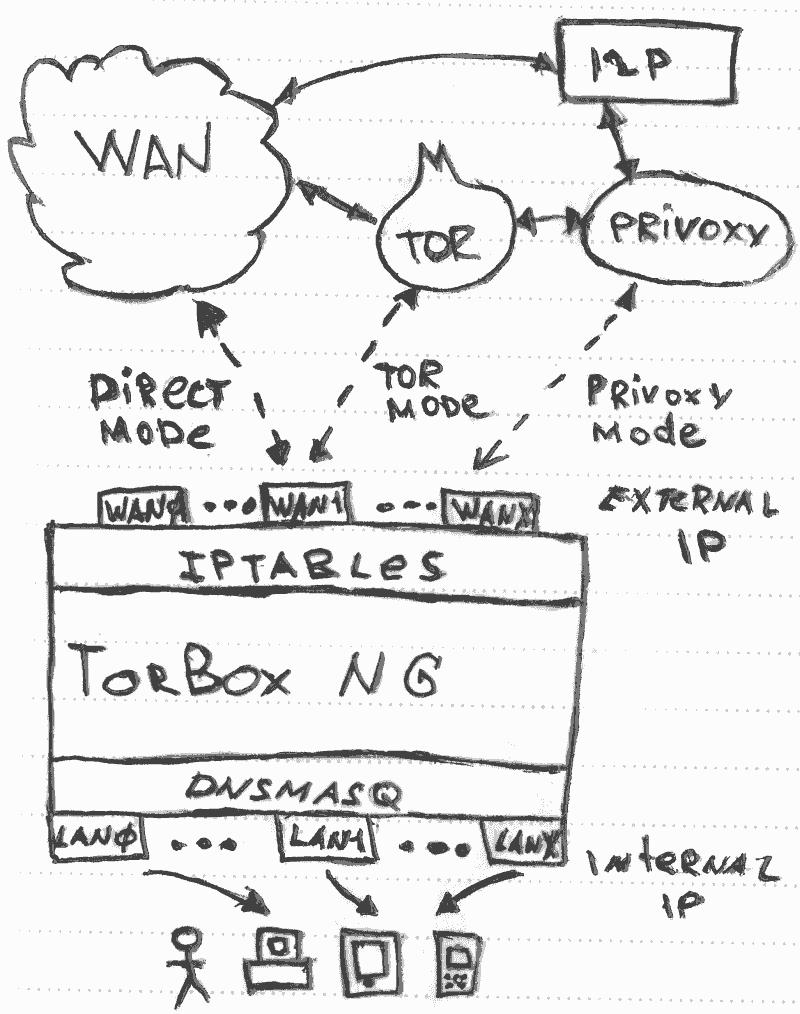 I2P
WAN
TOR
PRiVOXY
DiRECT
MODE
TOR
MODE
PRiVOXY
MODE
WANØ ... WAN1 .... WANX
EXTERNAL
IP
IPTABLES
TORBOX NG
DNSMASQ
LANØ ... LAN1 .... LANX
INTERNAL
IP